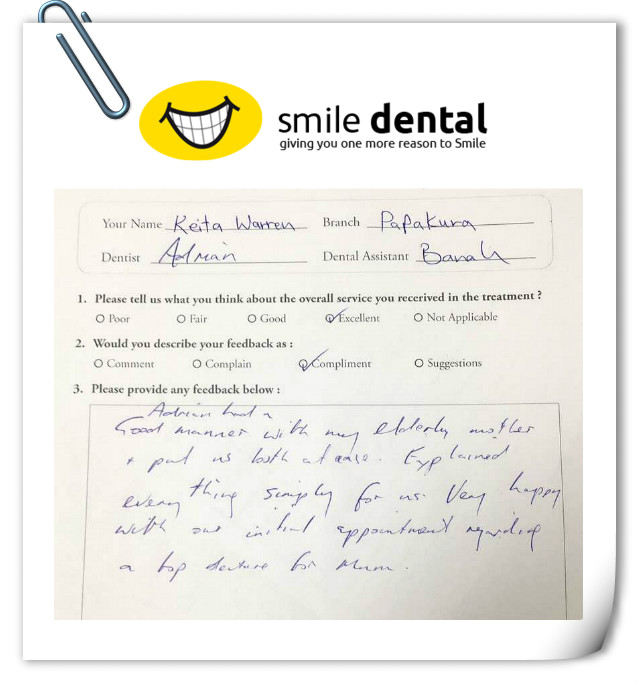 smile dental
giving you one more reason to Smile
Your Name Keita Warren Branch Papakura
Dentist Adrian Dental Assistant Banah
1. Please tell us what you think about the overall service you recerived in the treatment ?
O Poor O Fair O Good O Excellent O Not Applicable
2. Would you describe your feedback as :
O Comment O Complain O Compliment O Suggestions
3. Please provide any feedback below :
Adrian had a
Good manner with my elderly mother
+ put us both at ease. Explained
every thing simply for us. Very happy
with our initial appointment regarding
a top denture for Mum.